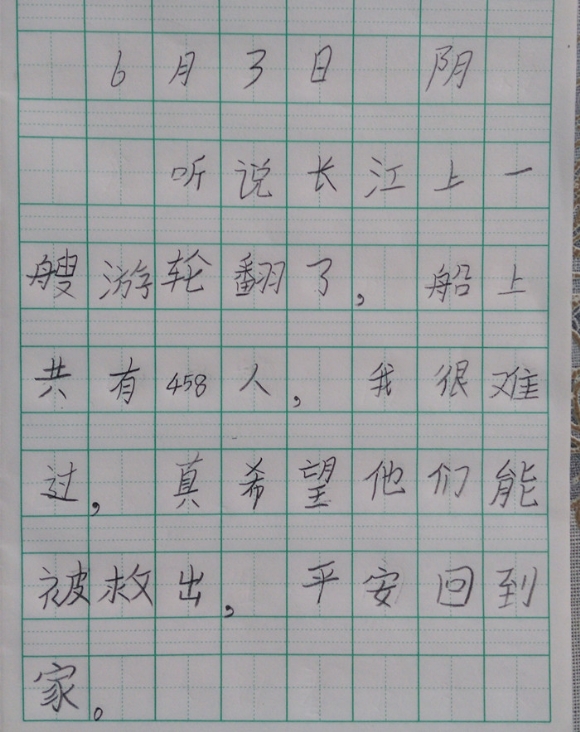 6月3日 阴
听说长江上一
艘游轮翻了，船上
共有458人，我很难
过，真希望他们能
被救出，平安回到
家。